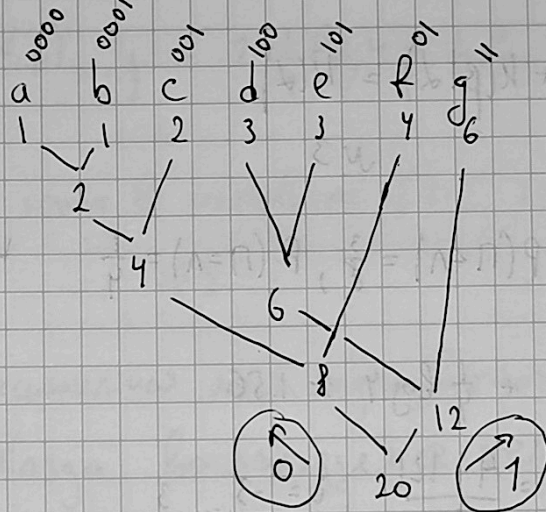 0000 0001 001 100 101 01 11
a b c d e f g
1 1 2 3 3 4 6
2
4
6
8
12
0 20 1